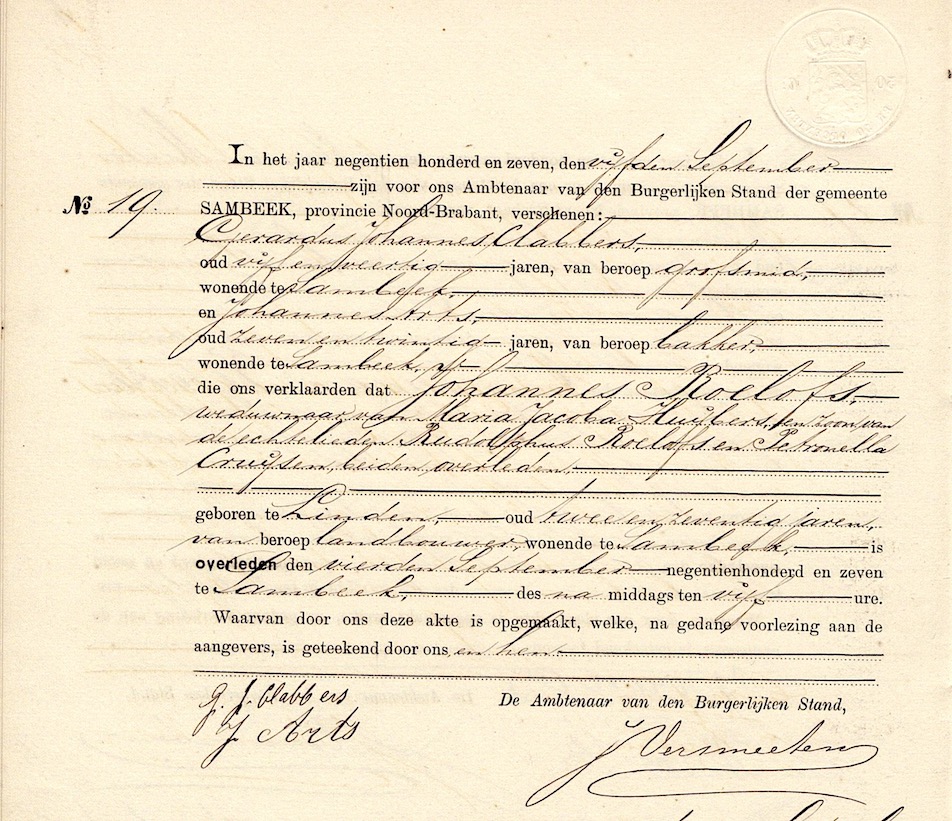 In het jaar negentien honderd en zeven, den vijfden September
zijn voor ons Ambtenaar van den Burgerlijken Stand der gemeente
No 19. SAMBEEK, provincie Noord-Brabant, verschenen:
Gerardus Johannes Clabbers,
oud vijf en veertig jaren, van beroep grofsmid,
wonende te Sambeek,
en Johannes Arts,
oud zeven en twintig jaren, van beroep bakker,
wonende te Sambeek,
die ons verklaarden dat Johannes Roelofs,
weduwnaar van Maria Jacoba Huijbers, en zoon van
de echtelieden Rudolphus Roelofs en Petronella
Cruijsen, beiden overleden
geboren te Linden, oud twee en zeventig jaren,
van beroep landbouwer, wonende te Sambeek, is
overleden den vierden September negentienhonderd en zeven
te Sambeek, des na middags ten vijf ure.
Waarvan door ons deze akte is opgemaakt, welke, na gedane voorlezing aan de
aangevers, is geteekend door ons en hen.
G. J. Clabbers
J Arts
De Ambtenaar van den Burgerlijken Stand,
J Vermeeten